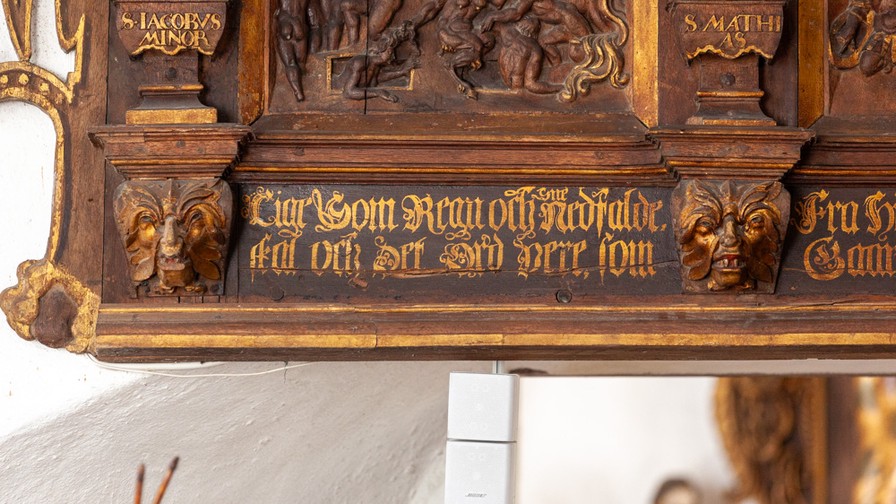 S·IACOBVS
MINOR
S MATHI
AS
Lige Som Regn och Sne Nedfalde,
skal och Det Ord vere, som
Fra H